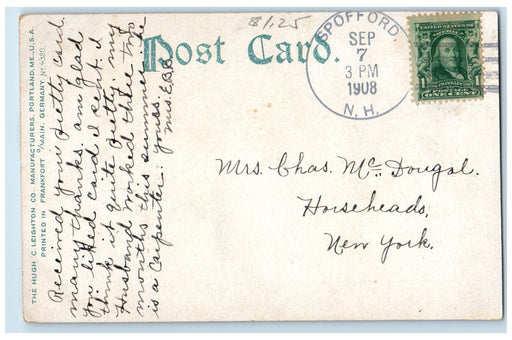 8/1.25
Post Card.
SPOFFORD
SEP
7
3 PM
1908
N. H.
Mrs. Chas. McDougal.
Horseheads,
New York.
THE HUGH C. LEIGHTON CO., MANUFACTURERS, PORTLAND, ME., U.S.A.
PRINTED IN FRANKFORT O/MAIN, GERMANY. No
Received your pretty card.
many thanks. am glad
you liked card I sent. I
think it quite pretty. my
Husband worked three
months this summer. he
is a carpenter. yours,
Mrs. E.B.B.